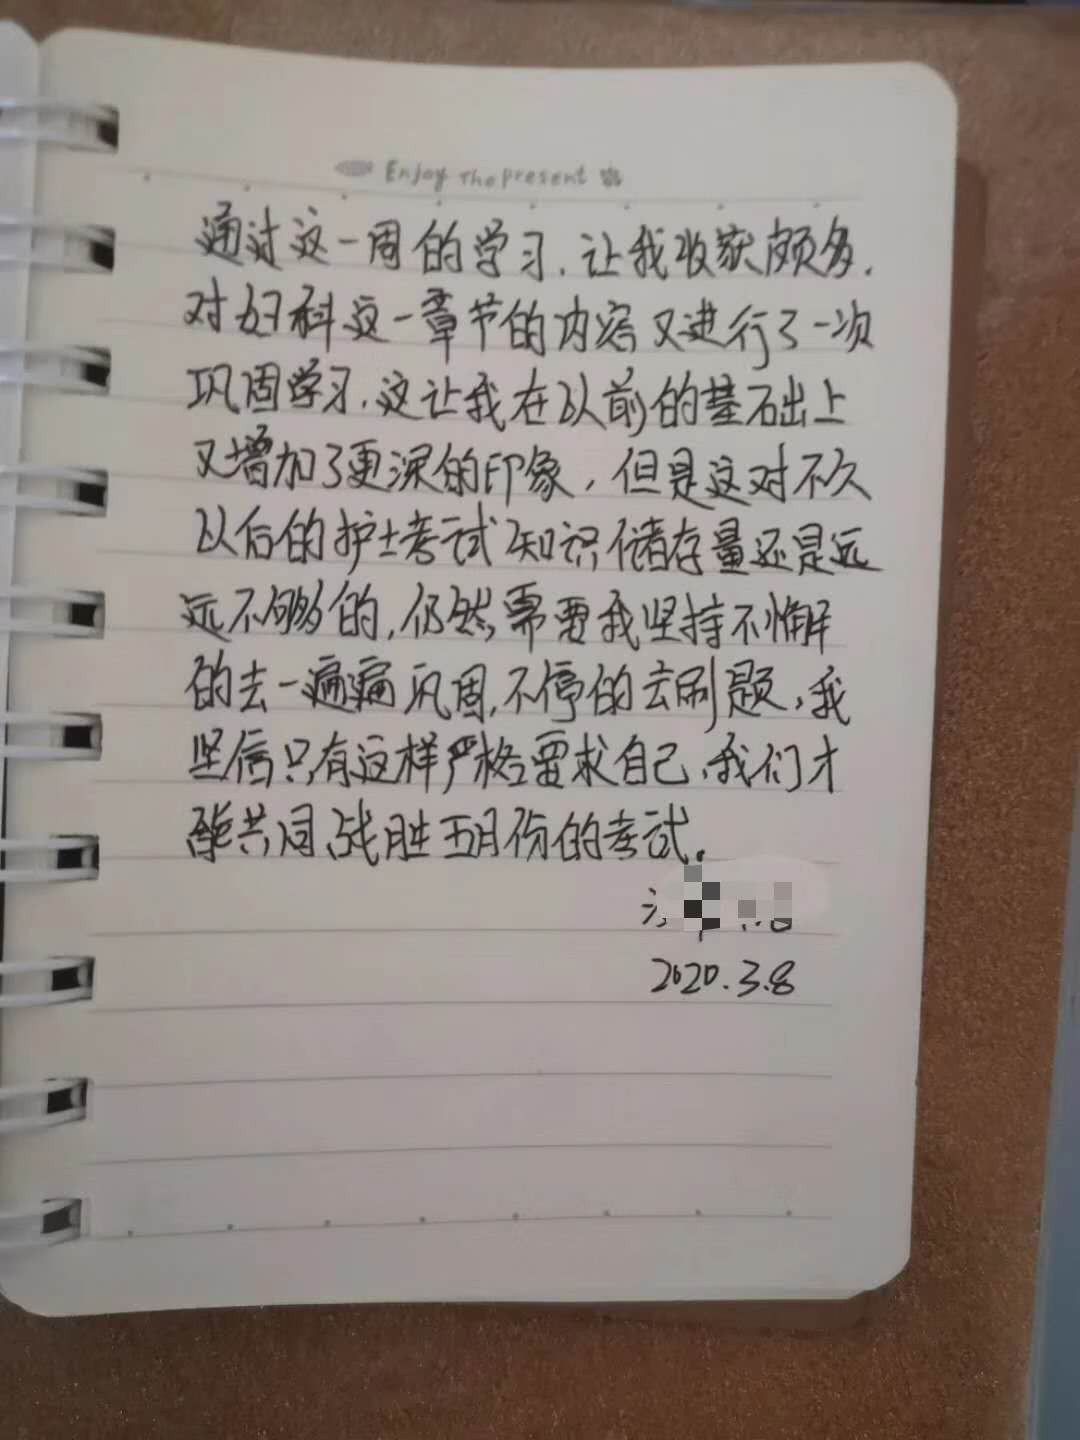 Enjoy The present
通过这一周的学习,让我收获颇多,
对妇科这一章节的内容又进行了一次
巩固学习,这让我在以前的基础上
又增加了更深的印象,但是这对不久
以后的护士考试知识储存量还是远
远不够的,仍然需要我坚持不懈
的去一遍遍巩固,不停的去刷题,我
坚信只有这样严格要求自己,我们才
能共同战胜五月份的考试。
2020.3.8